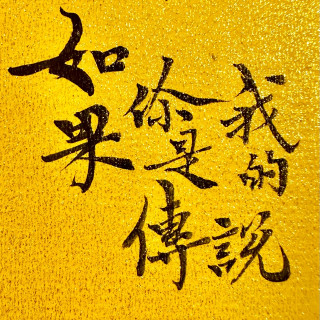 如果
你是
我的
傳說